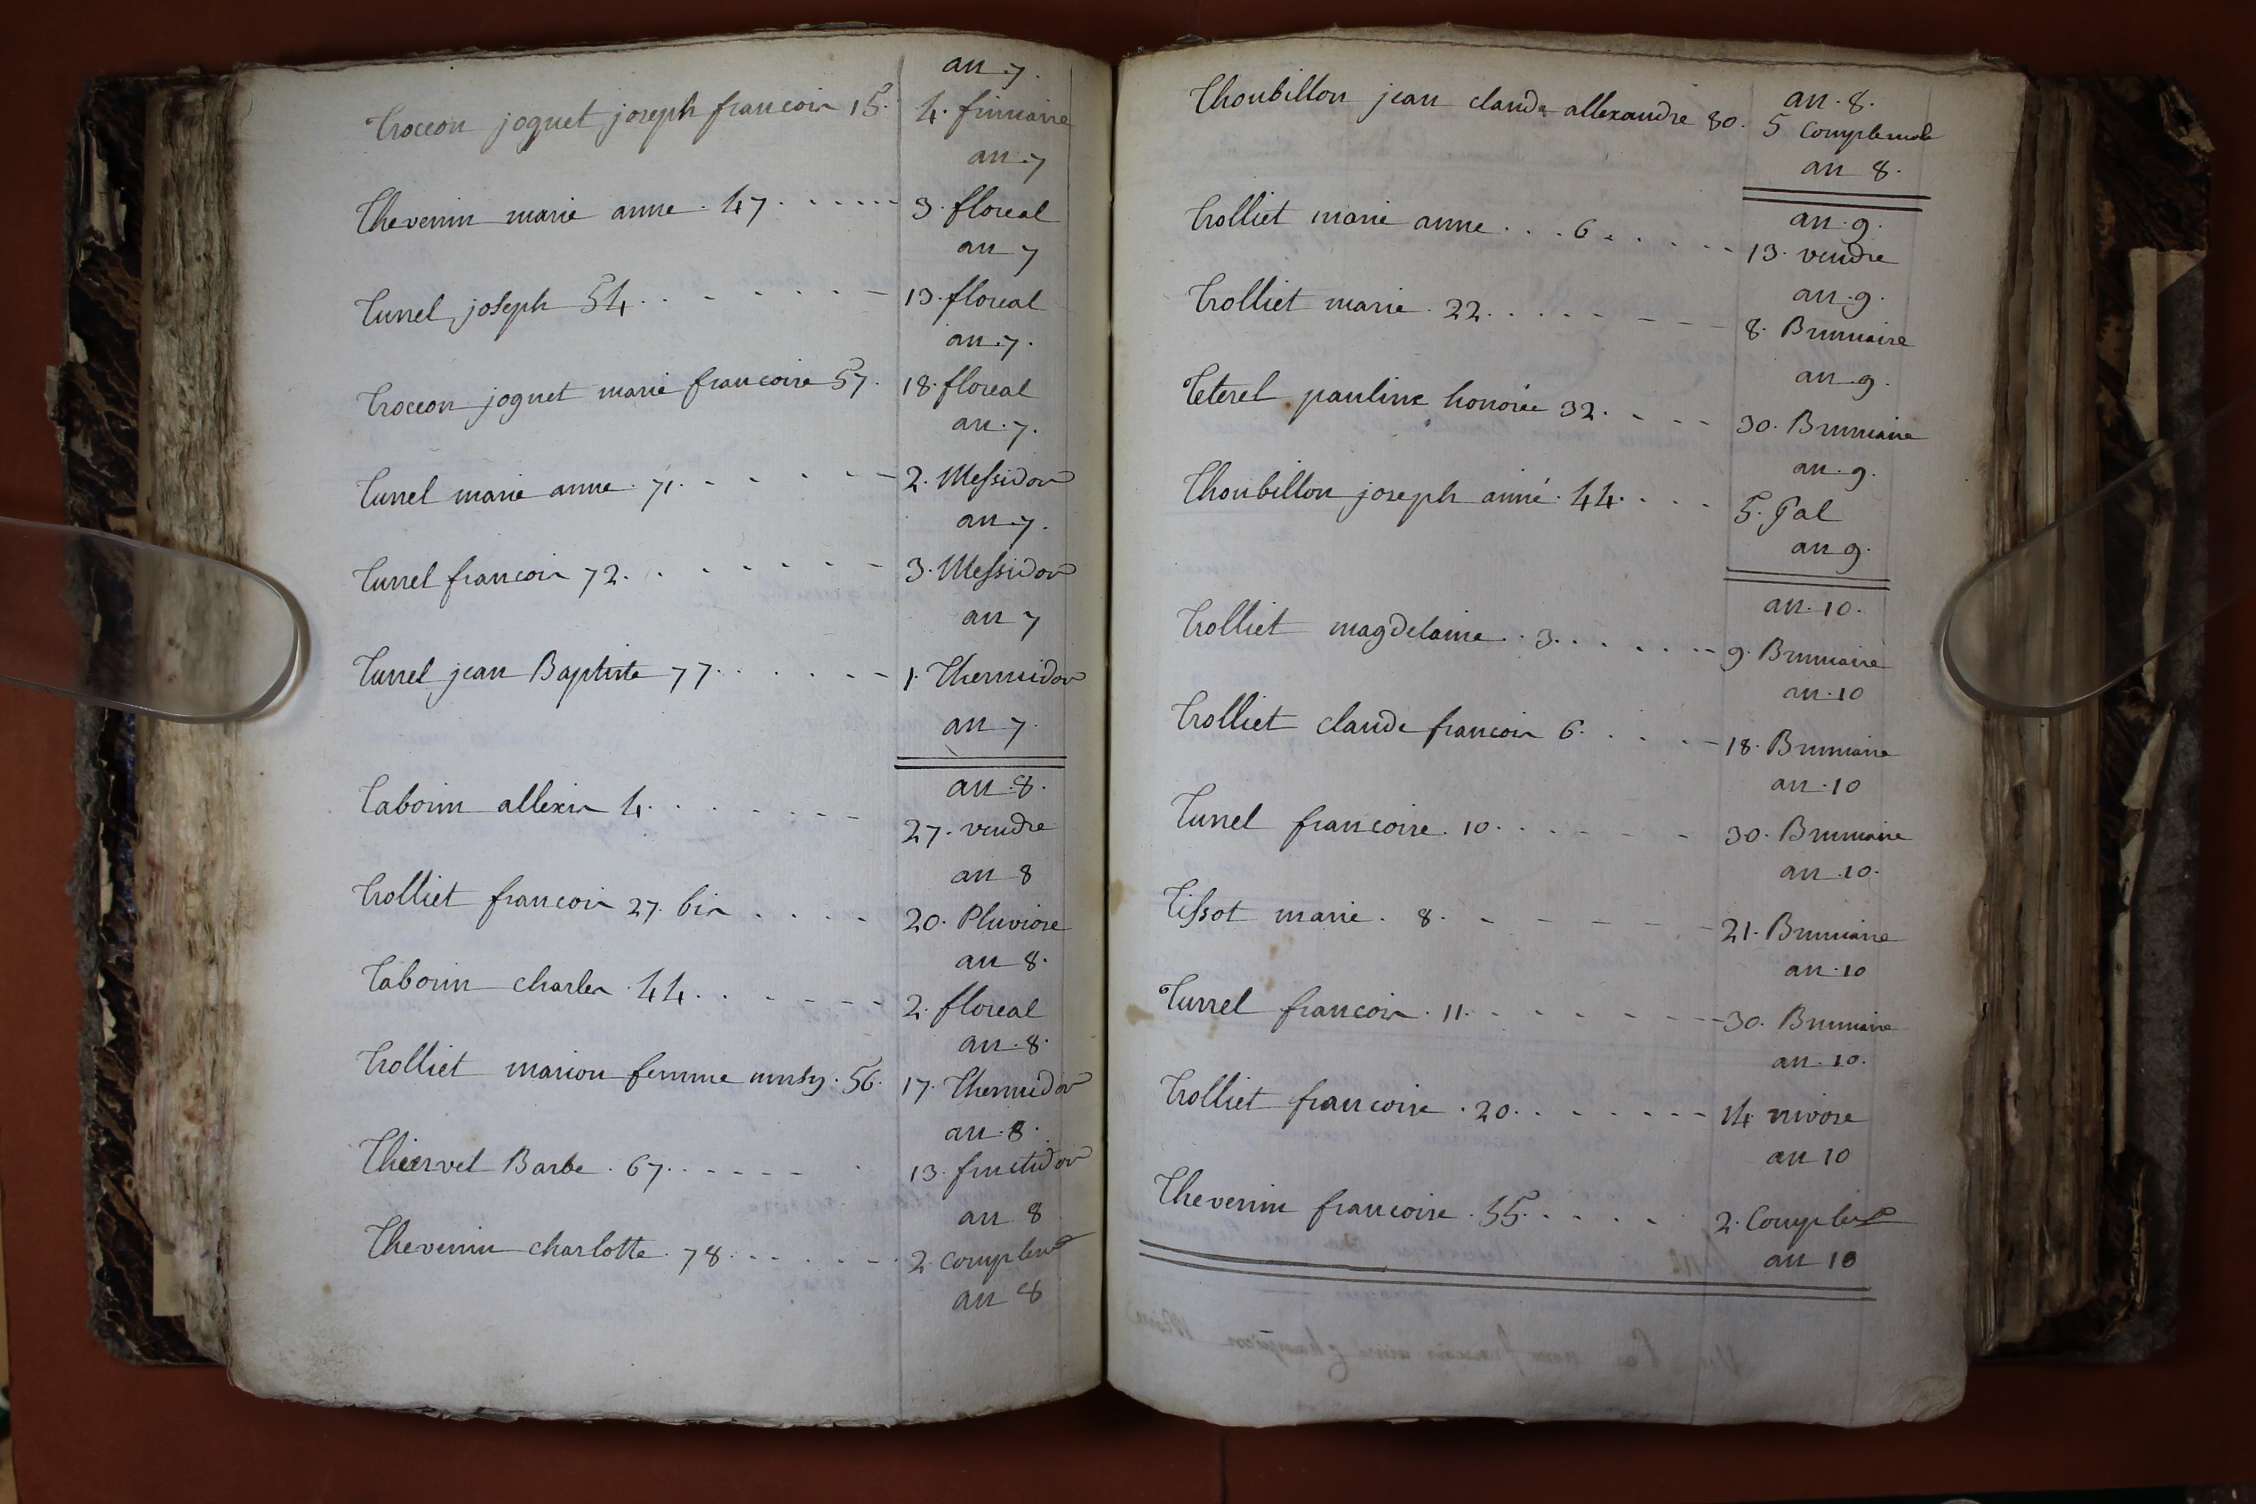 an .7.
Troccon joguet joseph francois 15. 4. frimaire
an .7
Thevenin marie anne . 47 . . . . . 3. floreal
an 7
Turrel joseph 54 . . - - - - - 13. floreal
an .7.
Troccon joguet marie francoise 57. 18. floreal
an .7.
Turrel marie anne . 71. - - - - - 2. Messidor
an .7.
Turrel francois 72. . - - - - - 3. Messidor
an 7
Turrel jean Baptiste 77. . . - - - 1. Thermidor
an 7.
an .8.
Taboim allexis 4. . . . - - - 27. vendre
an 8
Trolliet francois 27. bis . . . . 20. Pluviose
an 8.
Taboim charles 44. . - - - - 2. floreal
an .8.
Trolliet marion femme . 56. 17. Thermidor
an .8.
Thiervet Barbe . 67. . - - - - 13. fructidor
an 8
Thevenin charlotte . 78. . - - - - 2. complem
an 8
an .8.
Thoubillon jean claude allexandre 80. 5 Complem
an 8.
an .9.
Trolliet marie anne . . . 6 . . . - - 13. vendre
an .9.
Trolliet marie . 22. . . . - - - - 8. Brumaire
an .9.
Teterel pauline honorée 32. - - - 30. Brumaire
an .9.
Thoubillon joseph aimé . 44. . . . 5. Gal
an 9.
an .10.
Trolliet magdelaine . . 3. . . . - - 9. Brumaire
an .10
Trolliet claude francois 6. . . . - 18. Brumaire
an .10
Turrel francoise . 10. . . - - - - 30. Brumaire
an .10.
Tissot marie . 8. - - - - - 21. Brumaire
an .10
Turrel francois . 11. . - - - - - 30. Brumaire
an .10.
Trolliet francoise . 20. . . - - - - 14 nivose
an 10
Thevenin francoise . 55. . . . . . 2. Complem
an 10